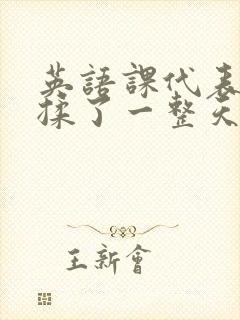 英語課代表
揉了一整天
王新會